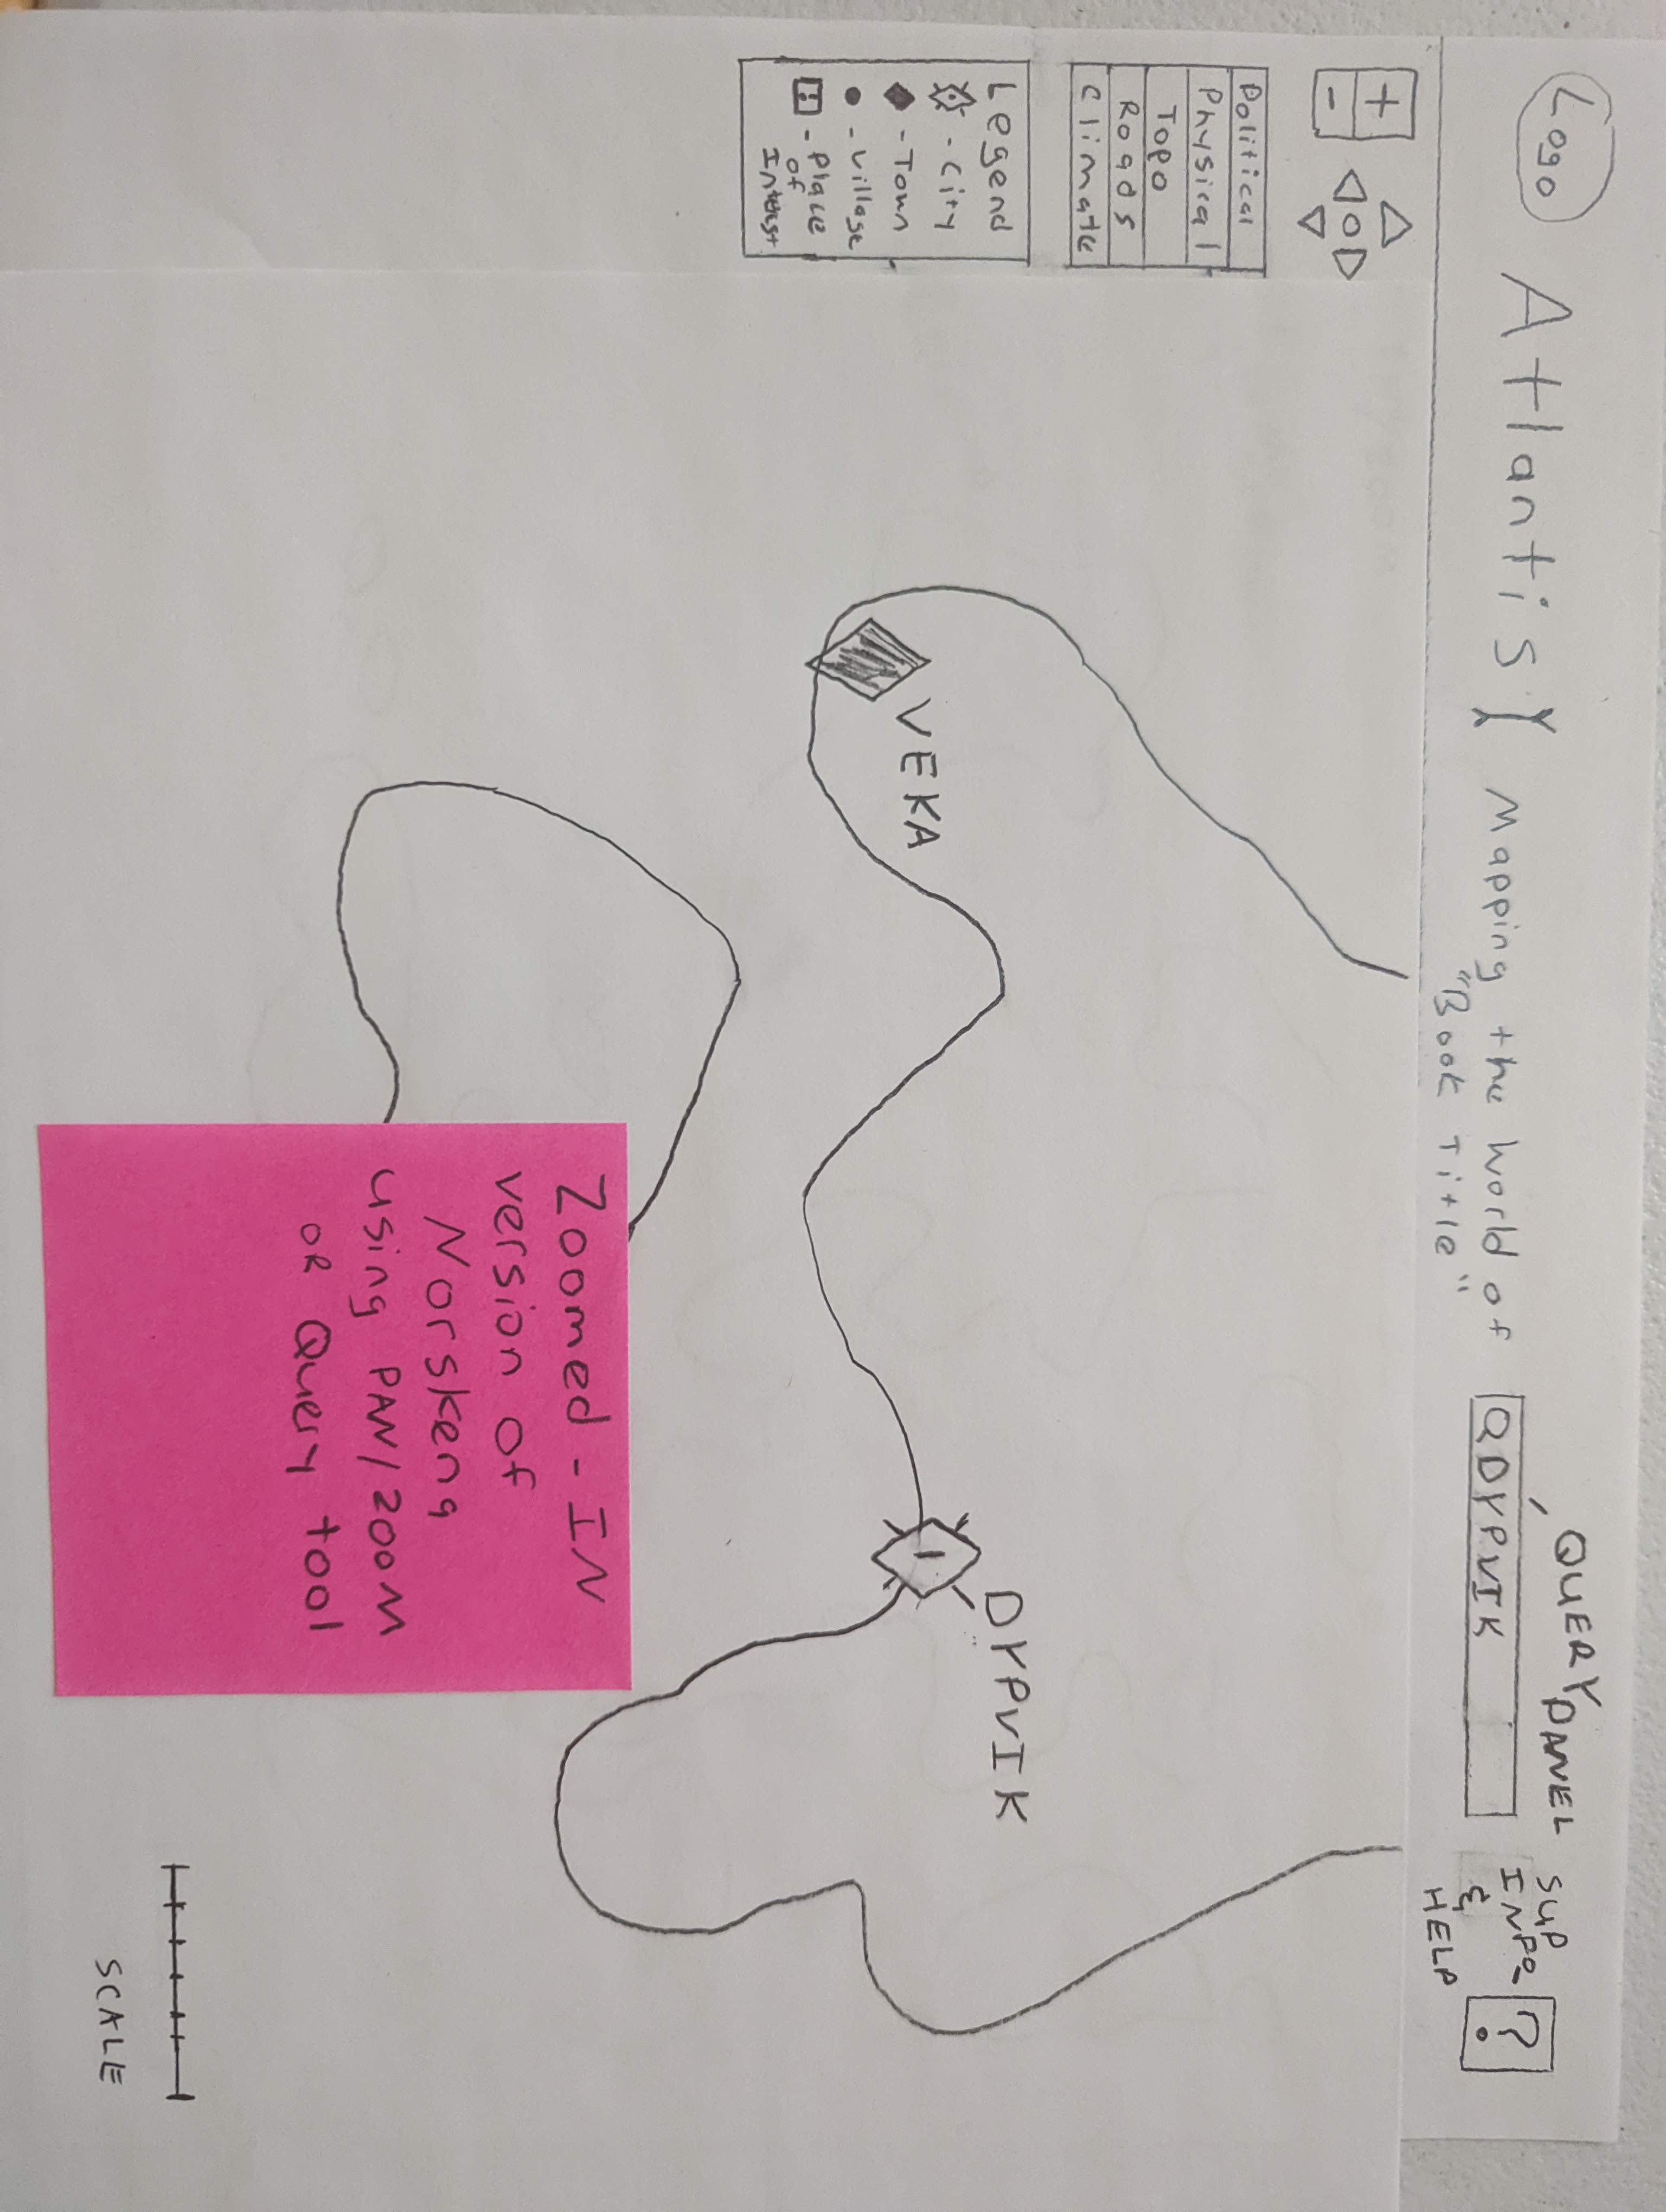 Logo
Atlantis
Mapping the World of
"Book Title"
QUERY PANEL
DYPVIK
SUP
INFO
&
HELP
?
+
-
Political
Physical
Topo
Roads
Climate
Legend
- City
- Town
- Village
- Place
of
Interest
VEKA
DYPVIK
Zoomed - IN
version of
Norskeng
using PAN/ZOOM
OR Query tool
SCALE